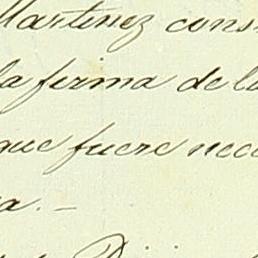 Martinez cons
la firma de la
que fuere nece
a. —